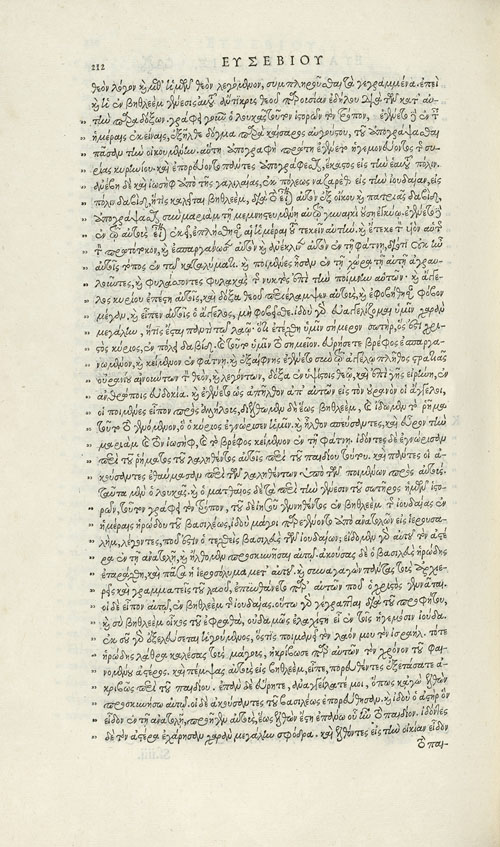 212 ΕΥΣΕΒΙΟΥ
θεὸν λόγον καὶ μεθ' ἡμῶν θεὸν λεγόμενον, συμπληροῦσθαι τὰ γεγραμμένα. ἐπεὶ
καὶ ἡ ἐν βηθλεὲμ γένεσις αὐτοῦ ἄντικρυς θεοῦ παρουσίαν ἐδήλου διὰ τῶν κατ' αὐ-
„ τὴν παραδόξων. γράφει γοῦν ὁ λουκᾶς τοῦτον ἱστορῶν τὸν τρόπον, ἐγένετο δὲ ἐν τ
„ ἡμέραις ἐκείναις, ἐξῆλθε δόγμα παρὰ καίσαρος αὐγούστου, τοῦ ἀπογράψασθαι
„ πᾶσαν τὴν οἰκουμένην. αὕτη ἀπογραφὴ πρώτη ἐγένετο ἡγεμονεύοντος τ συ-
„ ρίας κυρινίου. καὶ ἐπορεύοντο πάντες ἀπογράφεσθαι, ἕκαστος εἰς τὴν ἑαυτοῦ πόλιν.
„ ἀνέβη δὲ καὶ ἰωσὴφ ἀπὸ τῆς γαλιλαίας, ἐκ πόλεως ναζαρὲτ εἰς τὴν ἰουδαίαν, εἰς
„ πόλιν δαβὶδ, ἥτις καλεῖται βηθλεὲμ, διὰ τὸ εἶναι αὐτὸν ἐξ οἴκου καὶ πατριᾶς δαβὶδ,
„ ἀπογράψασθαι σὺν μαριὰμ τῇ μεμνηστευμένῃ αὐτῷ γυναικὶ οὔσῃ ἐγκύῳ. ἐγένετο δὲ
„ ἐν τῷ αὐτοὺς εἶναι ἐκεῖ, ἐπλήσθησαν αἱ ἡμέραι τοῦ τεκεῖν αὐτήν. καὶ ἔτεκε τὸν υἱὸν αὐτῆς
„ τὸν πρωτότοκον, καὶ ἐσπαργάνωσεν αὐτὸν καὶ ἀνέκλινεν αὐτὸν ἐν τῇ φάτνῃ, διότι οὐκ ἦν
„ αὐτοῖς τόπος ἐν τῷ καταλύματι. καὶ ποιμένες ἦσαν ἐν τῇ χώρᾳ τῇ αὐτῇ ἀγραυ-
„ λοῦντες, καὶ φυλάσσοντες φυλακὰς τ νυκτὸς ἐπὶ τὴν ποίμνην αὐτῶν. καὶ ἄγγε-
„ λος κυρίου ἐπέστη αὐτοῖς, καὶ δόξα θεοῦ περιέλαμψεν αὐτοὺς, καὶ ἐφοβήθησαν φόβον
„ μέγαν. καὶ εἶπεν αὐτοῖς ὁ ἄγγελος, μὴ φοβεῖσθε. ἰδοὺ γὰρ εὐαγγελίζομαι ὑμῖν χαρὰν
„ μεγάλην, ἥτις ἔσται παντὶ τῷ λαῷ. ὅτι ἐτέχθη ὑμῖν σήμερον σωτὴρ, ὅς ἐστι χρι-
„ στὸς κύριος, ἐν πόλει δαβίδ. καὶ τοῦτο ὑμῖν τὸ σημεῖον. εὑρήσετε βρέφος ἐσπαργα-
„ νωμένον, καὶ κείμενον ἐν φάτνῃ. καὶ ἐξαίφνης ἐγένετο σὺν τῷ ἀγγέλῳ πλῆθος στρατιᾶς
„ οὐρανίου αἰνούντων τὸν θεὸν, καὶ λεγόντων, δόξα ἐν ὑψίστοις θεῷ, καὶ ἐπὶ γῆς εἰρήνη, ἐν
„ ἀνθρώποις εὐδοκία. καὶ ἐγένετο ὡς ἀπῆλθον ἀπ' αὐτῶν εἰς τὸν οὐρανὸν οἱ ἄγγελοι,
„ οἱ ποιμένες εἶπον πρὸς ἀλλήλους, διέλθωμεν δὴ ἕως βηθλεὲμ, καὶ ἴδωμεν τὸ ῥῆμα
„ τοῦτο τὸ γενόμενον, ὃ ὁ κύριος ἐγνώρισεν ἡμῖν. καὶ ἦλθον σπεύσαντες, καὶ εὗρον τὴν
„ μαριὰμ καὶ τὸν ἰωσὴφ, καὶ τὸ βρέφος κείμενον ἐν τῇ φάτνῃ. ἰδόντες δὲ ἐγνώρισαν
„ περὶ τοῦ ῥήματος τοῦ λαληθέντος αὐτοῖς περὶ τοῦ παιδίου τούτου. καὶ πάντες οἱ ἀ-
„ κούσαντες ἐθαύμασαν περὶ τῶν λαληθέντων ὑπὸ τῶν ποιμένων πρὸς αὐτούς.
ταῦτα μὲν ὁ λουκᾶς. καὶ ὁ ματθαῖος δὲ τὰ περὶ τὴν γένεσιν τοῦ σωτῆρος ἡμῶν ἱστο-
„ ρῶν, τοῦτον γράφει τὸν τρόπον, τοῦ δὲ ἰησοῦ γεννηθέντος ἐν βηθλεὲμ τ ἰουδαίας ἐν
„ ἡμέραις ἡρώδου τοῦ βασιλέως, ἰδοὺ μάγοι παρεγένοντο ἀπὸ ἀνατολῶν εἰς ἱερουσα-
„ λὴμ, λέγοντες, ποῦ ἐστὶν ὁ τεχθεὶς βασιλεὺς τῶν ἰουδαίων; εἴδομεν γὰρ αὐτοῦ τὸν ἀστέ-
„ ρα ἐν τῇ ἀνατολῇ, καὶ ἤλθομεν προσκυνῆσαι αὐτῷ. ἀκούσας δὲ ὁ βασιλεὺς ἡρώδης
„ ἐταράχθη, καὶ πᾶσα ἡ ἱεροσόλυμα μετ' αὐτοῦ. καὶ συναγαγὼν πάντας τοὺς ἀρχιε-
„ ρεῖς καὶ γραμματεῖς τοῦ λαοῦ, ἐπυνθάνετο παρ' αὐτῶν ποῦ ὁ χριστὸς γεννᾶται.
„ οἱ δὲ εἶπον αὐτῷ, ἐν βηθλεὲμ τ ἰουδαίας. οὕτω γὰρ γέγραπται διὰ τοῦ προφήτου,
„ καὶ σὺ βηθλεὲμ οἶκος τοῦ ἐφραθὰ, οὐδαμῶς ἐλαχίστη εἶ ἐν τοῖς ἡγεμόσιν ἰούδα.
„ ἐκ σοῦ γὰρ ἐξελεύσεται ἡγούμενος, ὅστις ποιμανεῖ τὸν λαόν μου τὸν ἰσραήλ. τότε
„ ἡρώδης λάθρα καλέσας τοὺς μάγους, ἠκρίβωσε παρ' αὐτῶν τὸν χρόνον τοῦ φαι-
„ νομένου ἀστέρος. καὶ πέμψας αὐτοὺς εἰς βηθλεὲμ, εἶπε, πορευθέντες ἐξετάσατε ἀ-
„ κριβῶς περὶ τοῦ παιδίου. ἐπὰν δὲ εὕρητε, ἀπαγγείλατέ μοι, ὅπως κἀγὼ ἐλθὼν
„ προσκυνήσω αὐτῷ. οἱ δὲ ἀκούσαντες τοῦ βασιλέως ἐπορεύθησαν. καὶ ἰδοὺ ὁ ἀστὴρ ὃν
„ εἶδον ἐν τῇ ἀνατολῇ, προῆγεν αὐτοὺς, ἕως ἐλθὼν ἔστη ἐπάνω οὗ ἦν τὸ παιδίον. ἰδόντες
„ δὲ τὸν ἀστέρα ἐχάρησαν χαρὰν μεγάλην σφόδρα. καὶ ἐλθόντες εἰς τὴν οἰκίαν εἶδον
τὸ παι-